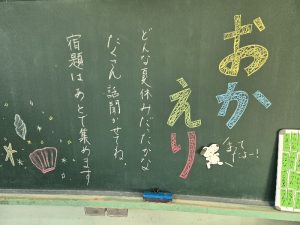 おか
えり
まってたよー!
どんな夏休みだったかな
たくさん話聞かせてね。
宿題はあとで集めます